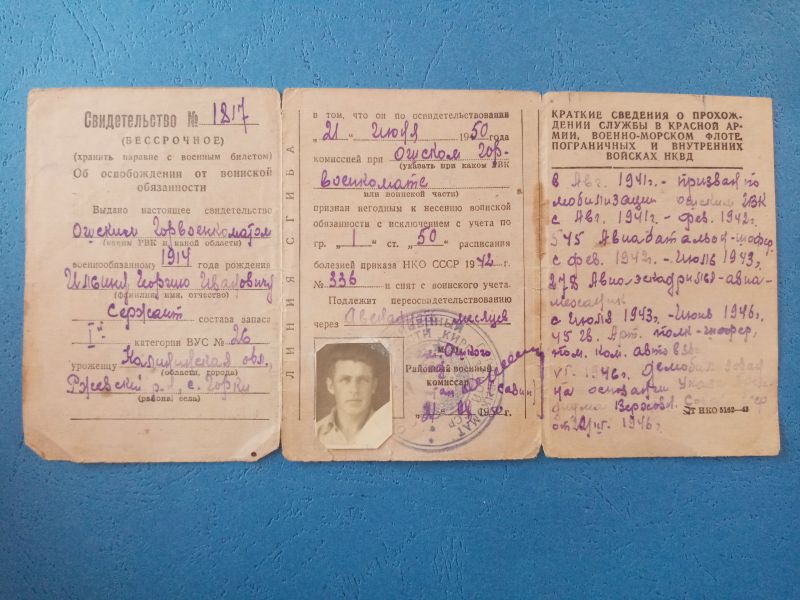 Свидетельство № 1817
(БЕССРОЧНОЕ)
(хранить наравне с военным билетом)
Об освобождении от воинской
обязанности
Выдано настоящее свидетельство
Ошским Горвоенкоматом
(каким РВК и какой области)
военнообязанному 1914 года рождения
Ильину Георгию Ивановичу
(фамилия, имя, отчество)
Сержант состава запаса
I категории ВУС № 26
уроженцу Калининская обл,
(области, города)
Ржевский р-н, с. Горки
(района, села)
ЛИНИЯ СГИБА
в том, что он по освидетельствовании
„21“ Июля 1950 года
комиссией при Ошском Гор-
(указать при каком РВК
военкомате
или воинской части)
признан негодным к несению воинской
обязанности с исключением с учета по
гр. I ст. 50 расписания
болезней приказа НКО СССР 1942 г.
№ 336 и снят с воинского учета.
Подлежит переосвидетельствованию
через месяцев
Ошского
Районный военный
комиссар
(Савин)
1950 г.
КРАТКИЕ СВЕДЕНИЯ О ПРОХОЖ-
ДЕНИИ СЛУЖБЫ В КРАСНОЙ АР-
МИИ, ВОЕННО-МОРСКОМ ФЛОТЕ,
ПОГРАНИЧНЫХ И ВНУТРЕННИХ
ВОЙСКАХ НКВД
в Авг. 1941г. - призван по
мобилизации Ошским ГВК
с Авг. 1941г. - фев. 1942г.
545 Авиабатальон - шофер.
с фев. 1942г. - Июль 1943г.
278 Авиоэскадрилья - авиа-
механик
с Июля 1943г. - Июнь 1946г.
452 Арт. полк - шофер,
пом. ком. автовзв.
1946г. демобилизован
на основании Указа Прези-
диума Верховн. Совета
от 1946г.
НКО 5162—43